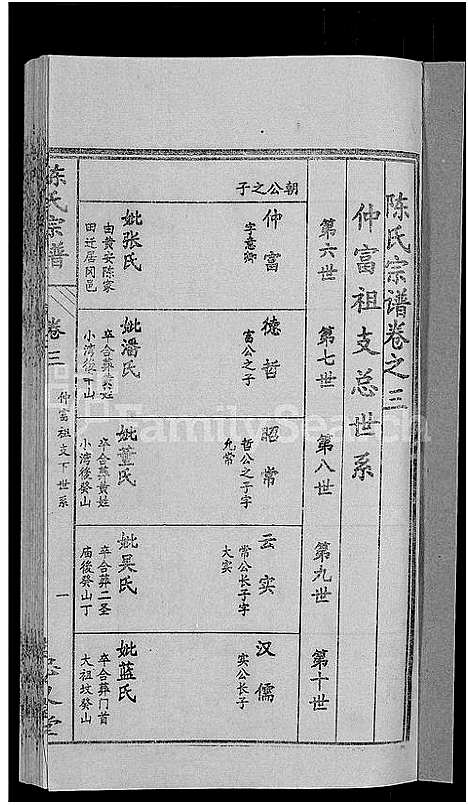 陈氏宗谱卷之三
仲富祖支总世系
第六世
第七世
第八世
第九世
第十世
朝公之子
仲富
字意卿
妣张氏
由黄安陈家
田迁居冈邑
德哲
富公之子
妣潘氏
卒合葬黄姓
小湾後山
昭常
哲公之子字
允常
妣董氏
卒合葬黄姓
小湾後癸山
云实
常公长子字
大实
妣吴氏
卒合葬二圣
庙後癸山丁
汉儒
实公长子
妣蓝氏
卒合葬门首
大祖坟癸山
陈氏宗谱
卷三
仲富祖支下世系
一
FamilySearch